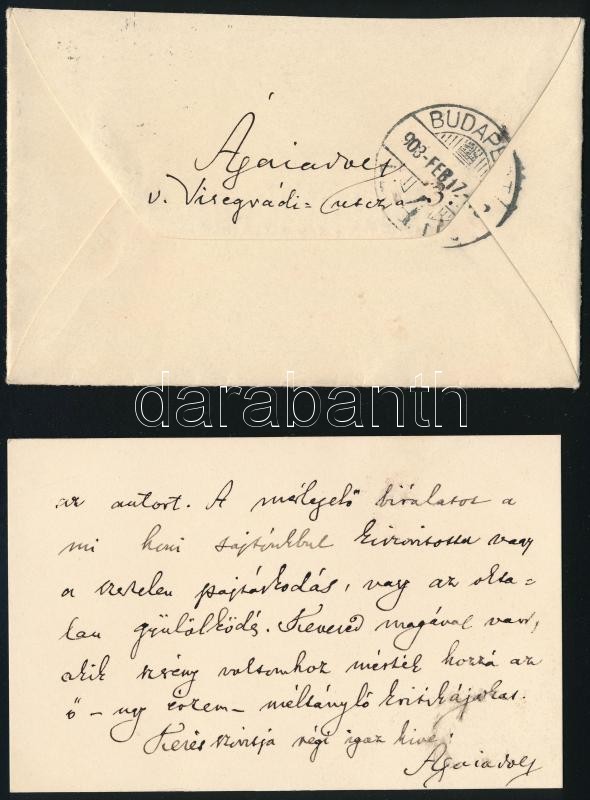 Ágaiadolf
v. Visegrádi-utcza
BUDAPEST
903 FEB 17
darabanth
az autort. A mérlegelő birálatot a
mi honi sajtónkbul kiszoritotta vagy
a szertelen pajtáskodás, vagy az okta-
lan gyülölködés. Kevesed magával van,
akik szerény voltomhoz mérték hozzá az
ő – ugy érzem – méltányló kritikájukat.
régi igaz hive:
Ágaiadolf